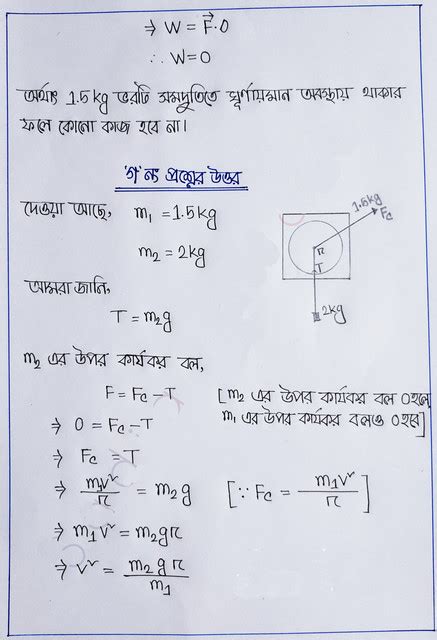 ⇒ W = F⃗·0
∴ W=0
অর্থাৎ 1.5kg ভরটি সমদ্রুতিতে ঘূর্ণায়মান অবস্থায় থাকার
ফলে কোনো কাজ হবে না।
'গ' নং প্রশ্নের উত্তর
দেওয়া আছে, m₁ = 1.5kg
m₂ = 2kg
1.5kg
Fc
r
T
2kg
আমরা জানি,
T = m₂g
m₂ এর উপর কার্যকর বল,
F = Fc - T [m₂ এর উপর কার্যকর বল 0 হলে
⇒ 0 = Fc - T m₁ এর উপর কার্যকর বলও 0 হবে]
⇒ Fc = T
⇒ m₁v²/r = m₂g [∵ Fc = m₁v²/r]
⇒ m₁v² = m₂gr
⇒ v² = m₂gr/m₁